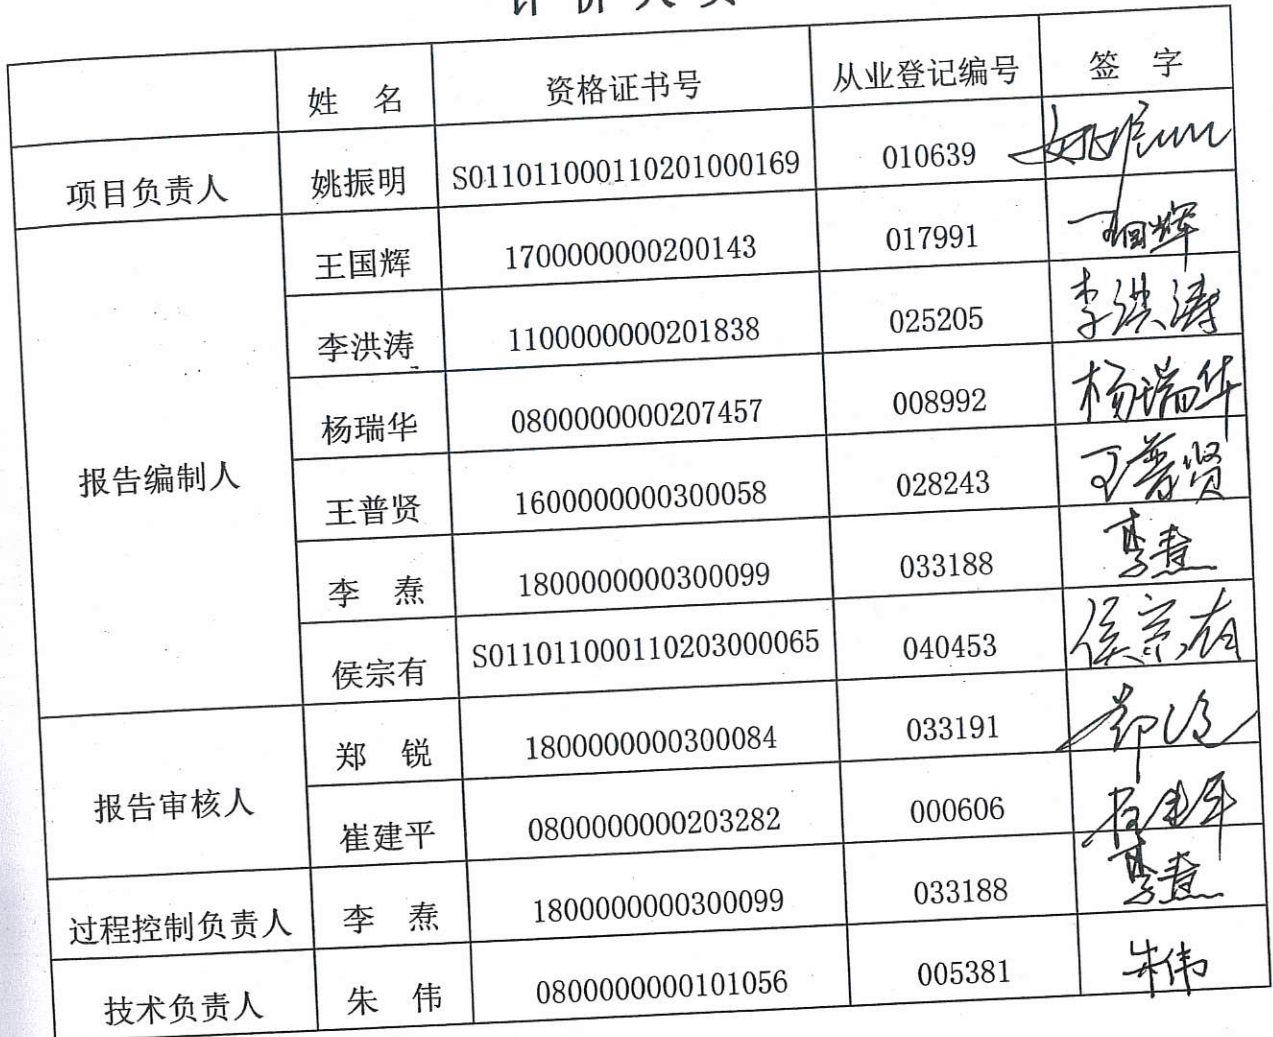 评价人员
姓 名 资格证书号 从业登记编号 签 字
项目负责人 姚振明 S011011000110201000169 010639 姚振明
报告编制人
王国辉 1700000000200143 017991 王国辉
李洪涛 1100000000201838 025205 李洪涛
杨瑞华 0800000000207457 008992 杨瑞华
王普贤 1600000000300058 028243 王普贤
李 焘 1800000000300099 033188 李焘
侯宗有 S011011000110203000065 040453 侯宗有
报告审核人
郑 锐 1800000000300084 033191 郑锐
崔建平 0800000000203282 000606 崔建平
过程控制负责人 李 焘 1800000000300099 033188 李焘
技术负责人 朱 伟 0800000000101056 005381 朱伟